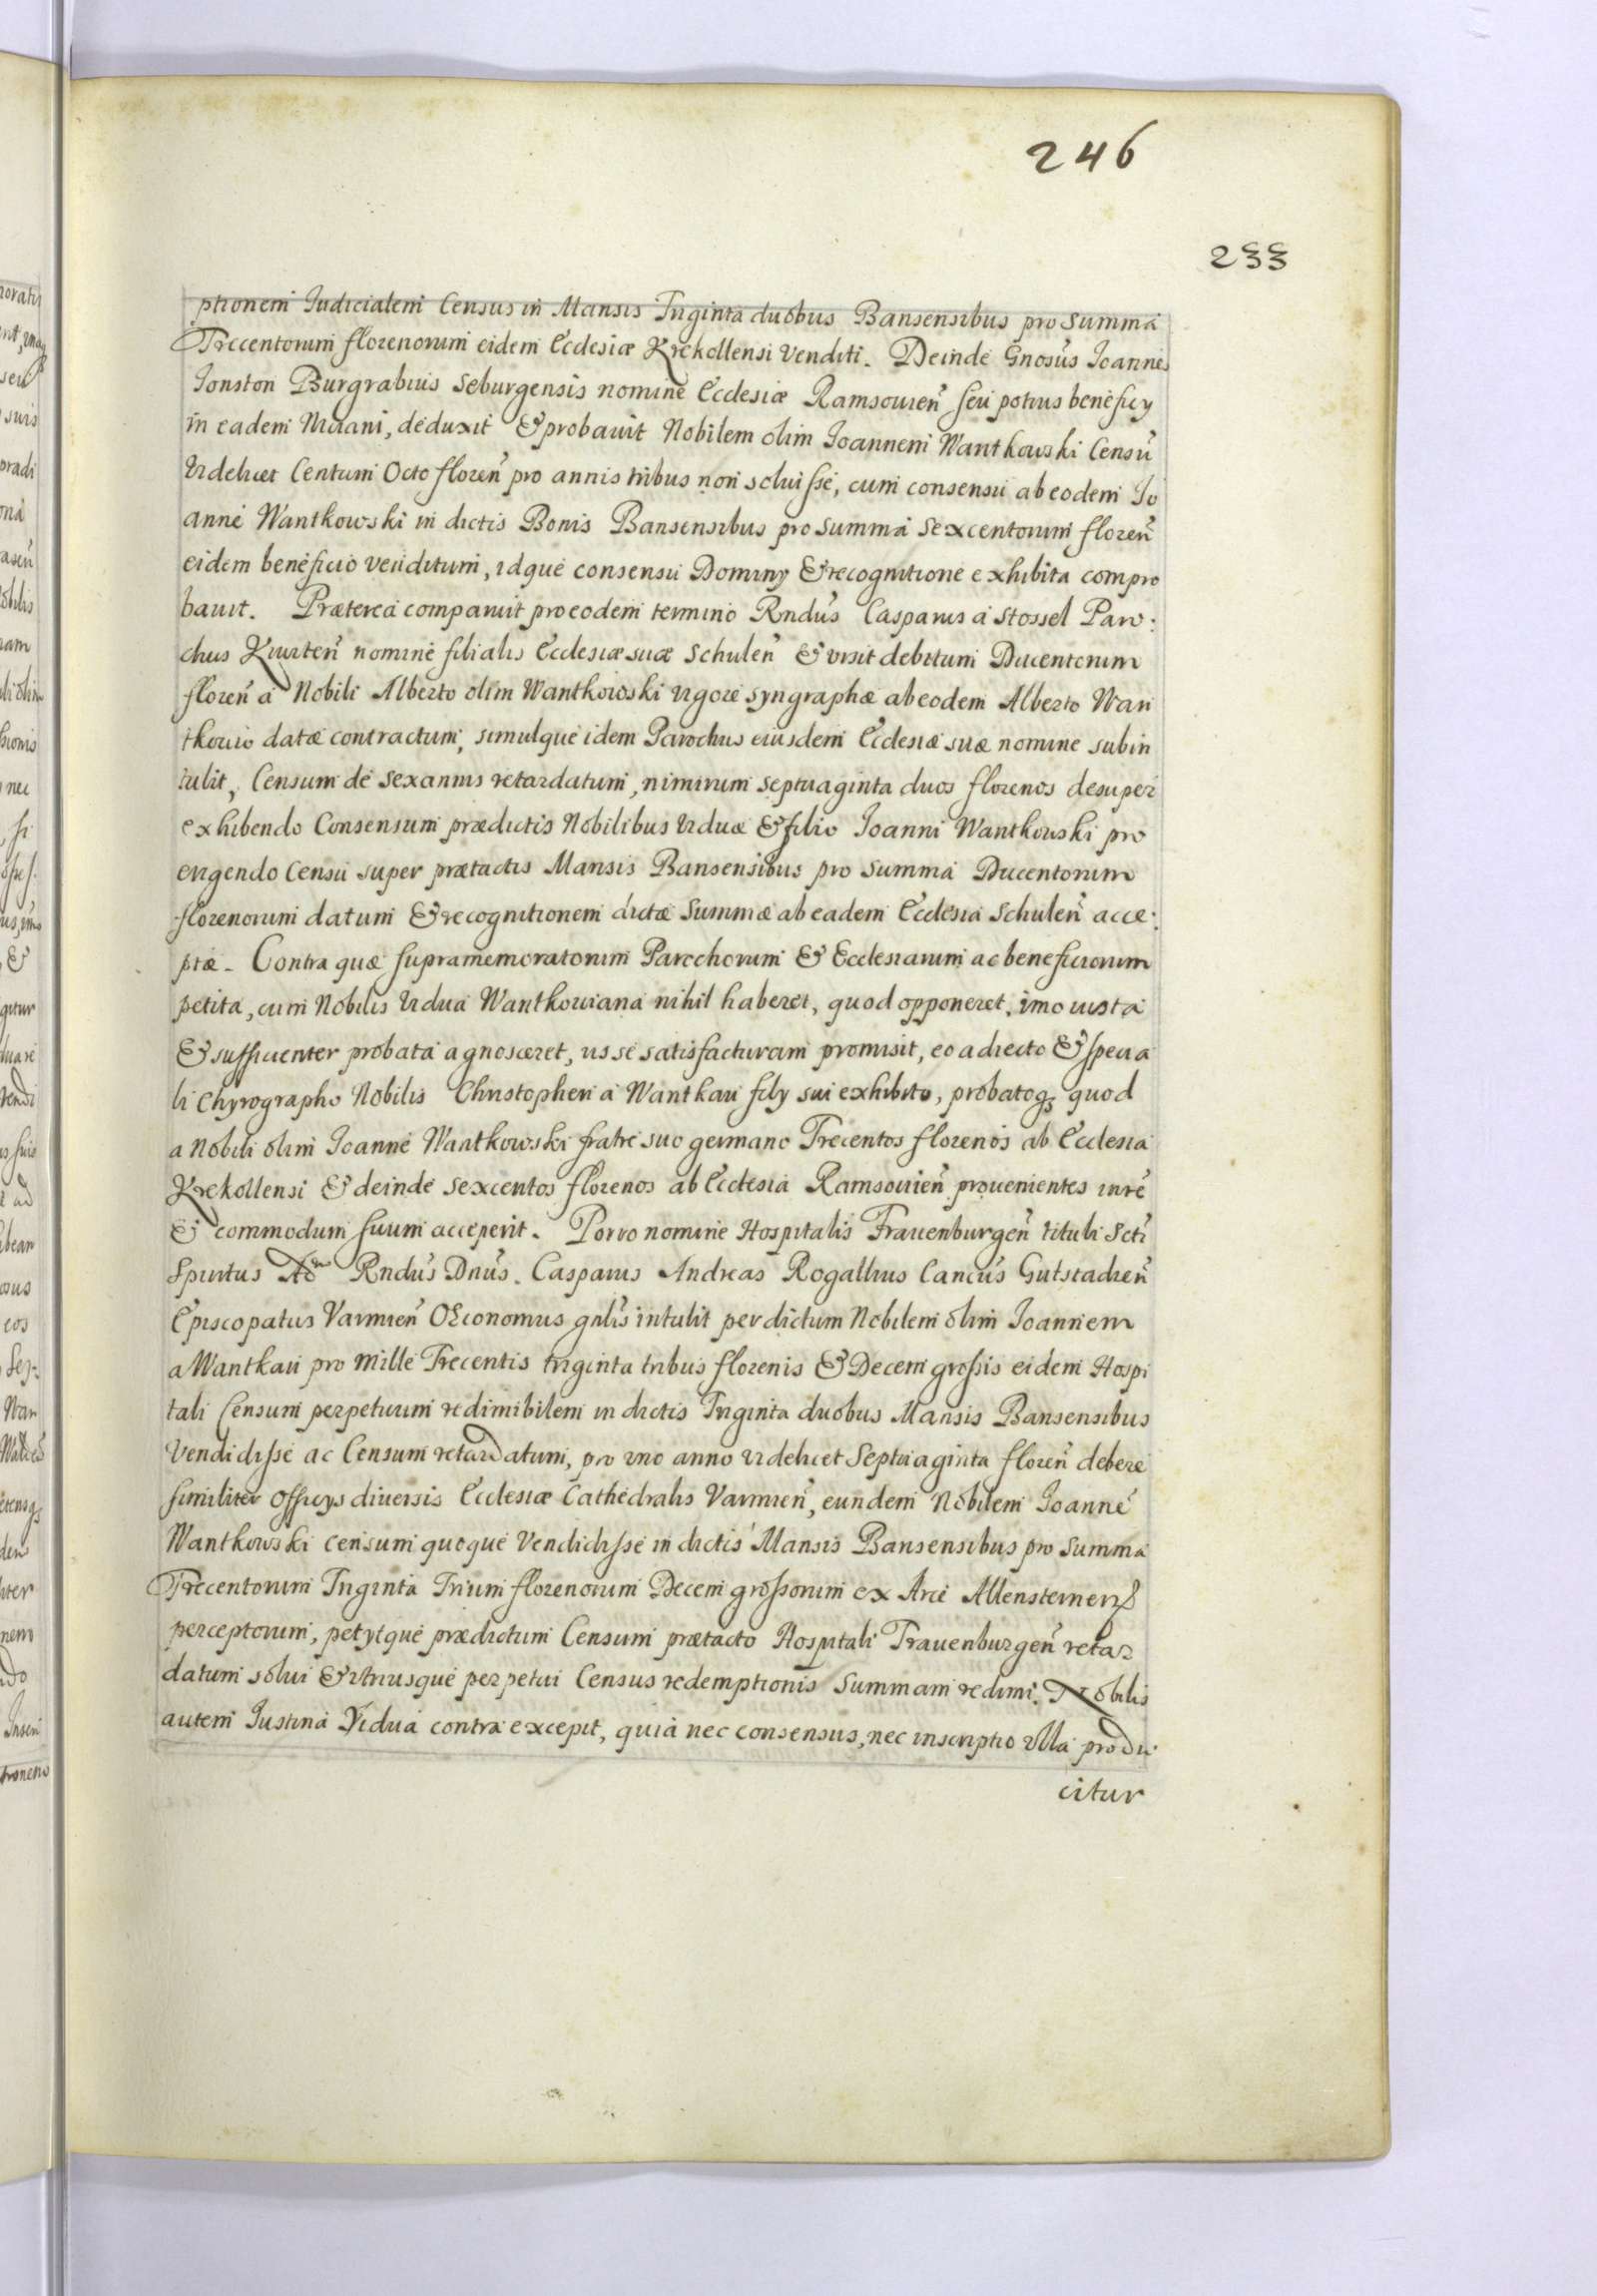 246
233
ptionem Iudicialem Census in Mansis Triginta duobus Bansensibus pro Summa
Trecentorum florenorum eidem Ecclesiæ Krekollensi venditi. Deinde Gnosus Ioannes
Ionston Burgrabius Seburgensis nomine Ecclesiæ Ramsouien̄ seu potius beneficy
in eadem, deduxit & probauit Nobilem olim Ioannem Wantkowski Censū
videlicet Centum Octo floren̄ pro annis tribus non soluisse, cum consensu ab eodem Io
anne Wantkowski in dictis Bonis Bansensibus pro summa Sexcentorum floren̄
eidem beneficio venditum, idque consensu Dominy & recognitione exhibita compro
bauit. Præterea comparuit pro eodem termino Rndus Casparus à Stossel Paro:
chus Kiwiten̄ nomine filialis Ecclesiæ suæ Schulen̄ & Ducentorum
floren̄ à Nobili Alberto olim Wantkowski vigore syngraphæ ab eodem Alberto Wan
tkouio datæ contractum, simulque idem Parochus eiusdem Ecclesiæ suæ nomine subin
tulit, Censum de sex annis retardatum, nimirum septuaginta duos florenos desuper
exhibendo Consensum prædictis Nobilibus viduæ & filio Ioanni Wantkowski pro
erigendo Censu super prætactis Mansis Bansensibus pro summa Ducentorum
florenorum datum & recognitionem dictæ summæ ab eadem Ecclesia Schulen̄ acce:
ptæ. Contra quæ supramemoratorum Parochorum & Ecclesiarum ac beneficiorum
petita, cum Nobilis vidua Wantkouiana nihil haberet, quod opponeret, imo iusta
& sufficienter probata agnosceret, iis se satisfacturam promisit, eo adiecto & specia
li Chyrographo Nobilis Christopheri à Wantkau fily sui exhibito, probatoq; quod
a Nobili olim Ioanne Wantkowski fratre suo germano Trecentos florenos ab Ecclesia
Krekollensi & deinde sexcentos florenos ab Ecclesia Ramsouien̄ prouenientes in rē
& commodum suum acceperit. Porro nomine Hospitalis Frauenburgen̄ tituli Scti
Spiritus Adm Rndus Dnus. Casparus Andreas Rogallius Cancus Gutstadien̄
Episcopatus Varmien̄ OEconomus gnlis intulit per dictum Nobilem olim Ioannem
a Wantkau pro Mille Trecentis triginta tribus florenis & Decem grossis eidem Hospi
tali Censum perpetuum redimibilem in dictis Triginta duobus Mansis Bansensibus
Vendidisse ac Censum retardatum, pro uno anno videlicet Septuaginta floren̄ debere
similiter officys diuersis Ecclesiæ Cathedralis Varmien̄, eundem Nobilem Ioannē
Wantkowski censum quoque Vendidisse in dictis Mansis Bansensibus pro summa
Trecentorum Triginta Trium florenorum Decem grossorum ex Arce Allensteinen̄
perceptorum, petytque prædictum Censum prætacto Hospitali Frauenburgen̄ retar
datum solui & vtriusque perpetui Census redemptionis Summam redimi. Nobilis
autem Iustina Vidua contra excepit, quia nec consensus, nec inscriptio vlla produ
citur